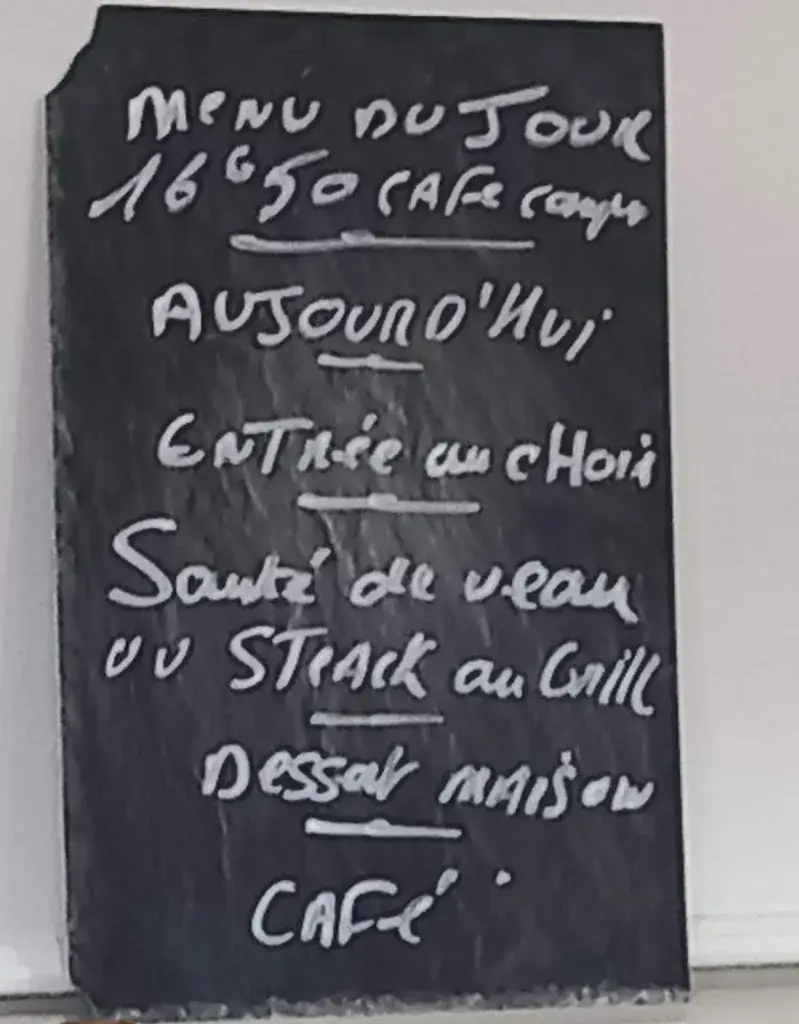 MENU DU JOUR
16€50 CAFE compris
AUJOURD'HUI
ENTRÉE au CHOIX
Sauté de veau
OU STEACK au Grill
Dessert MAISON
CAFÉ